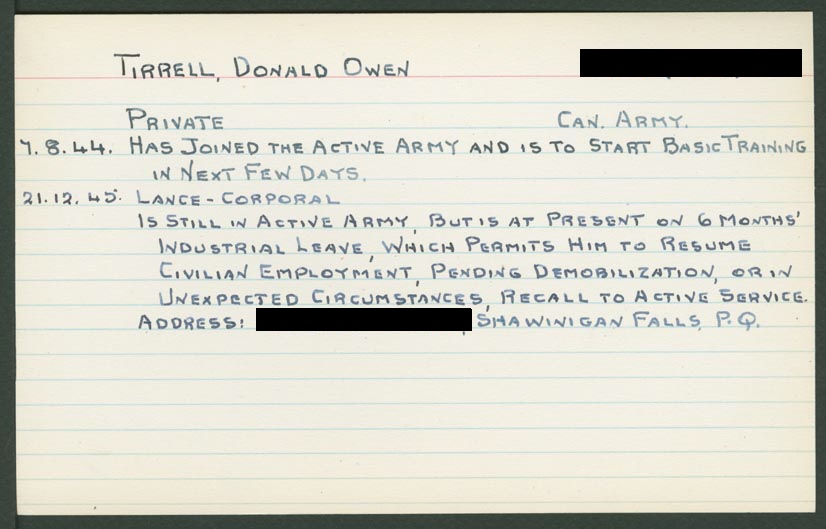 TIRRELL, DONALD OWEN
PRIVATE CAN. ARMY.
7.8.44. HAS JOINED THE ACTIVE ARMY AND IS TO START BASIC TRAINING
IN NEXT FEW DAYS.
21.12.45. LANCE-CORPORAL
IS STILL IN ACTIVE ARMY, BUT IS AT PRESENT ON 6 MONTHS'
INDUSTRIAL LEAVE, WHICH PERMITS HIM TO RESUME
CIVILIAN EMPLOYMENT, PENDING DEMOBILIZATION, OR IN
UNEXPECTED CIRCUMSTANCES, RECALL TO ACTIVE SERVICE.
ADDRESS: , SHAWINIGAN FALLS, P.Q.